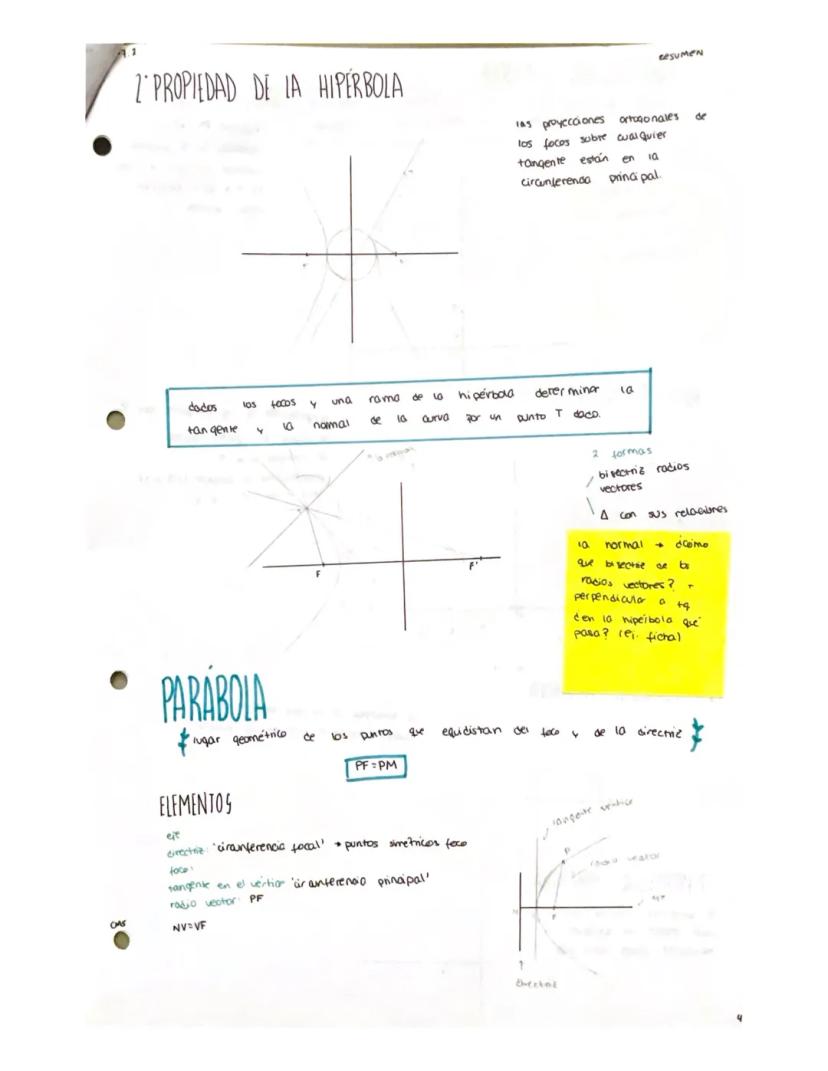 RESUMEN
2ª PROPIEDAD DE LA HIPÉRBOLA
las proyecciones ortogonales de
los focos sobre cualquier
tangente están en la
circunferencia principal.
dados los focos y una rama de la hipérbola determinar la
tangente y la normal de la curva por un punto T dado.
la normal
2 formas
bisectriz radios
vectores
Δ con sus relaciones
F
F'
la normal → ¿cómo
que bisectriz de los
radios vectores?
perpendicular a tg
¿en la hipérbola qué
pasa? (ej. ficha)
PARÁBOLA
lugar geométrico de los puntos que equidistan del foco y de la directriz
PF = PM
ELEMENTOS
eje
directriz: 'circunferencia focal' → puntos simétricos foco
foco:
tangente en el vértice 'circunferencia principal'
radio vector: PF
NV=VF
tangente vértice
P
radio vector
eje
F
directriz
4